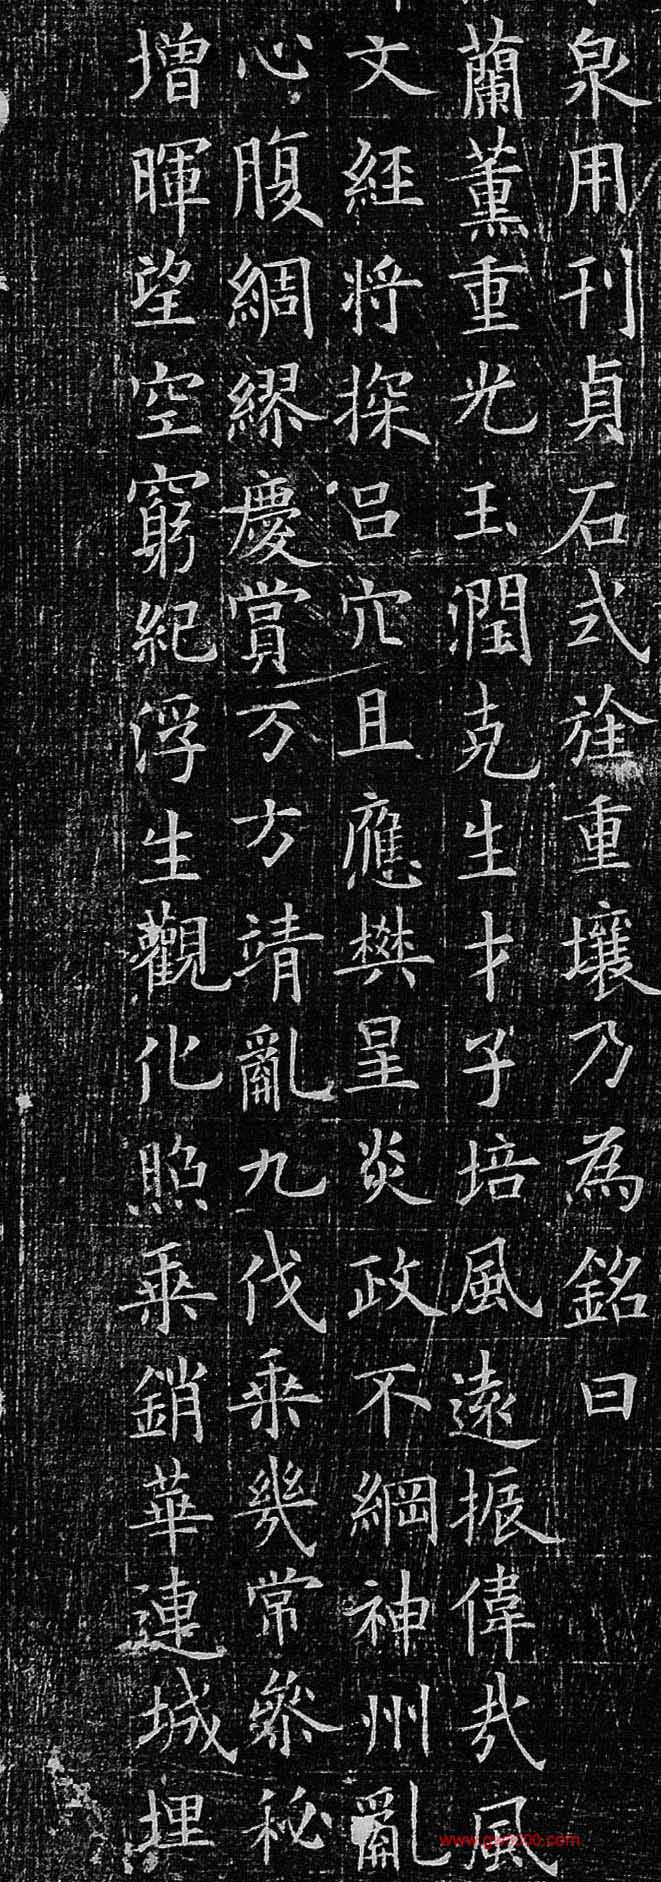 泉用刊貞石式旌重壤乃為銘曰
蘭薰重光玉潤克生才子培風遠振偉哉風
文経将探呂穴且應樊星炎政不綱神州亂
心腹綢繆慶賞万方靖亂九伐乘幾常叅秘
增暉望空窮紀浮生觀化照乘銷華連城埋